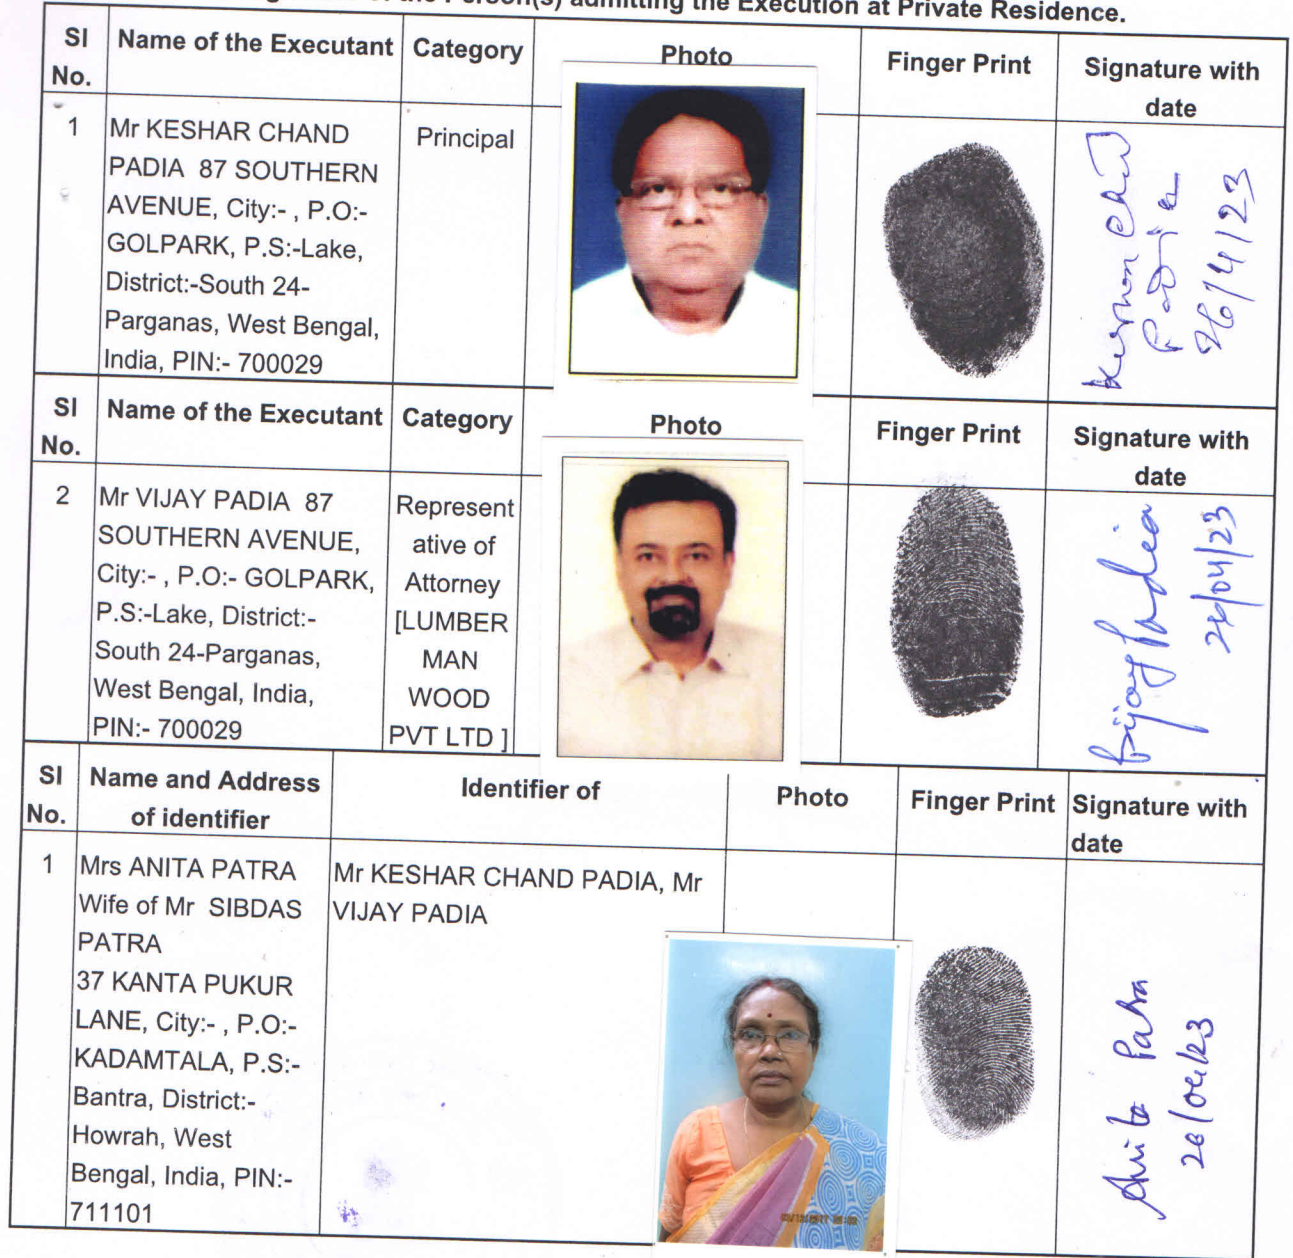 the Person(s) admitting the Execution at Private Residence.
SI No.
Name of the Executant
Category
Photo
Finger Print
Signature with date
1
Mr KESHAR CHAND
PADIA 87 SOUTHERN
AVENUE, City:- , P.O:-
GOLPARK, P.S:-Lake,
District:-South 24-
Parganas, West Bengal,
India, PIN:- 700029
Principal
Padia
26/4/23
SI No.
Name of the Executant
Category
Photo
Finger Print
Signature with date
2
Mr VIJAY PADIA 87
SOUTHERN AVENUE,
City:- , P.O:- GOLPARK,
P.S:-Lake, District:-
South 24-Parganas,
West Bengal, India,
PIN:- 700029
Represent
ative of
Attorney
[LUMBER
MAN
WOOD
PVT LTD ]
Bijay Padia
26/04/23
SI No.
Name and Address
of identifier
Identifier of
Photo
Finger Print
Signature with
date
1
Mrs ANITA PATRA
Wife of Mr SIBDAS
PATRA
37 KANTA PUKUR
LANE, City:- , P.O:-
KADAMTALA, P.S:-
Bantra, District:-
Howrah, West
Bengal, India, PIN:-
711101
Mr KESHAR CHAND PADIA, Mr
VIJAY PADIA
Anita Patra